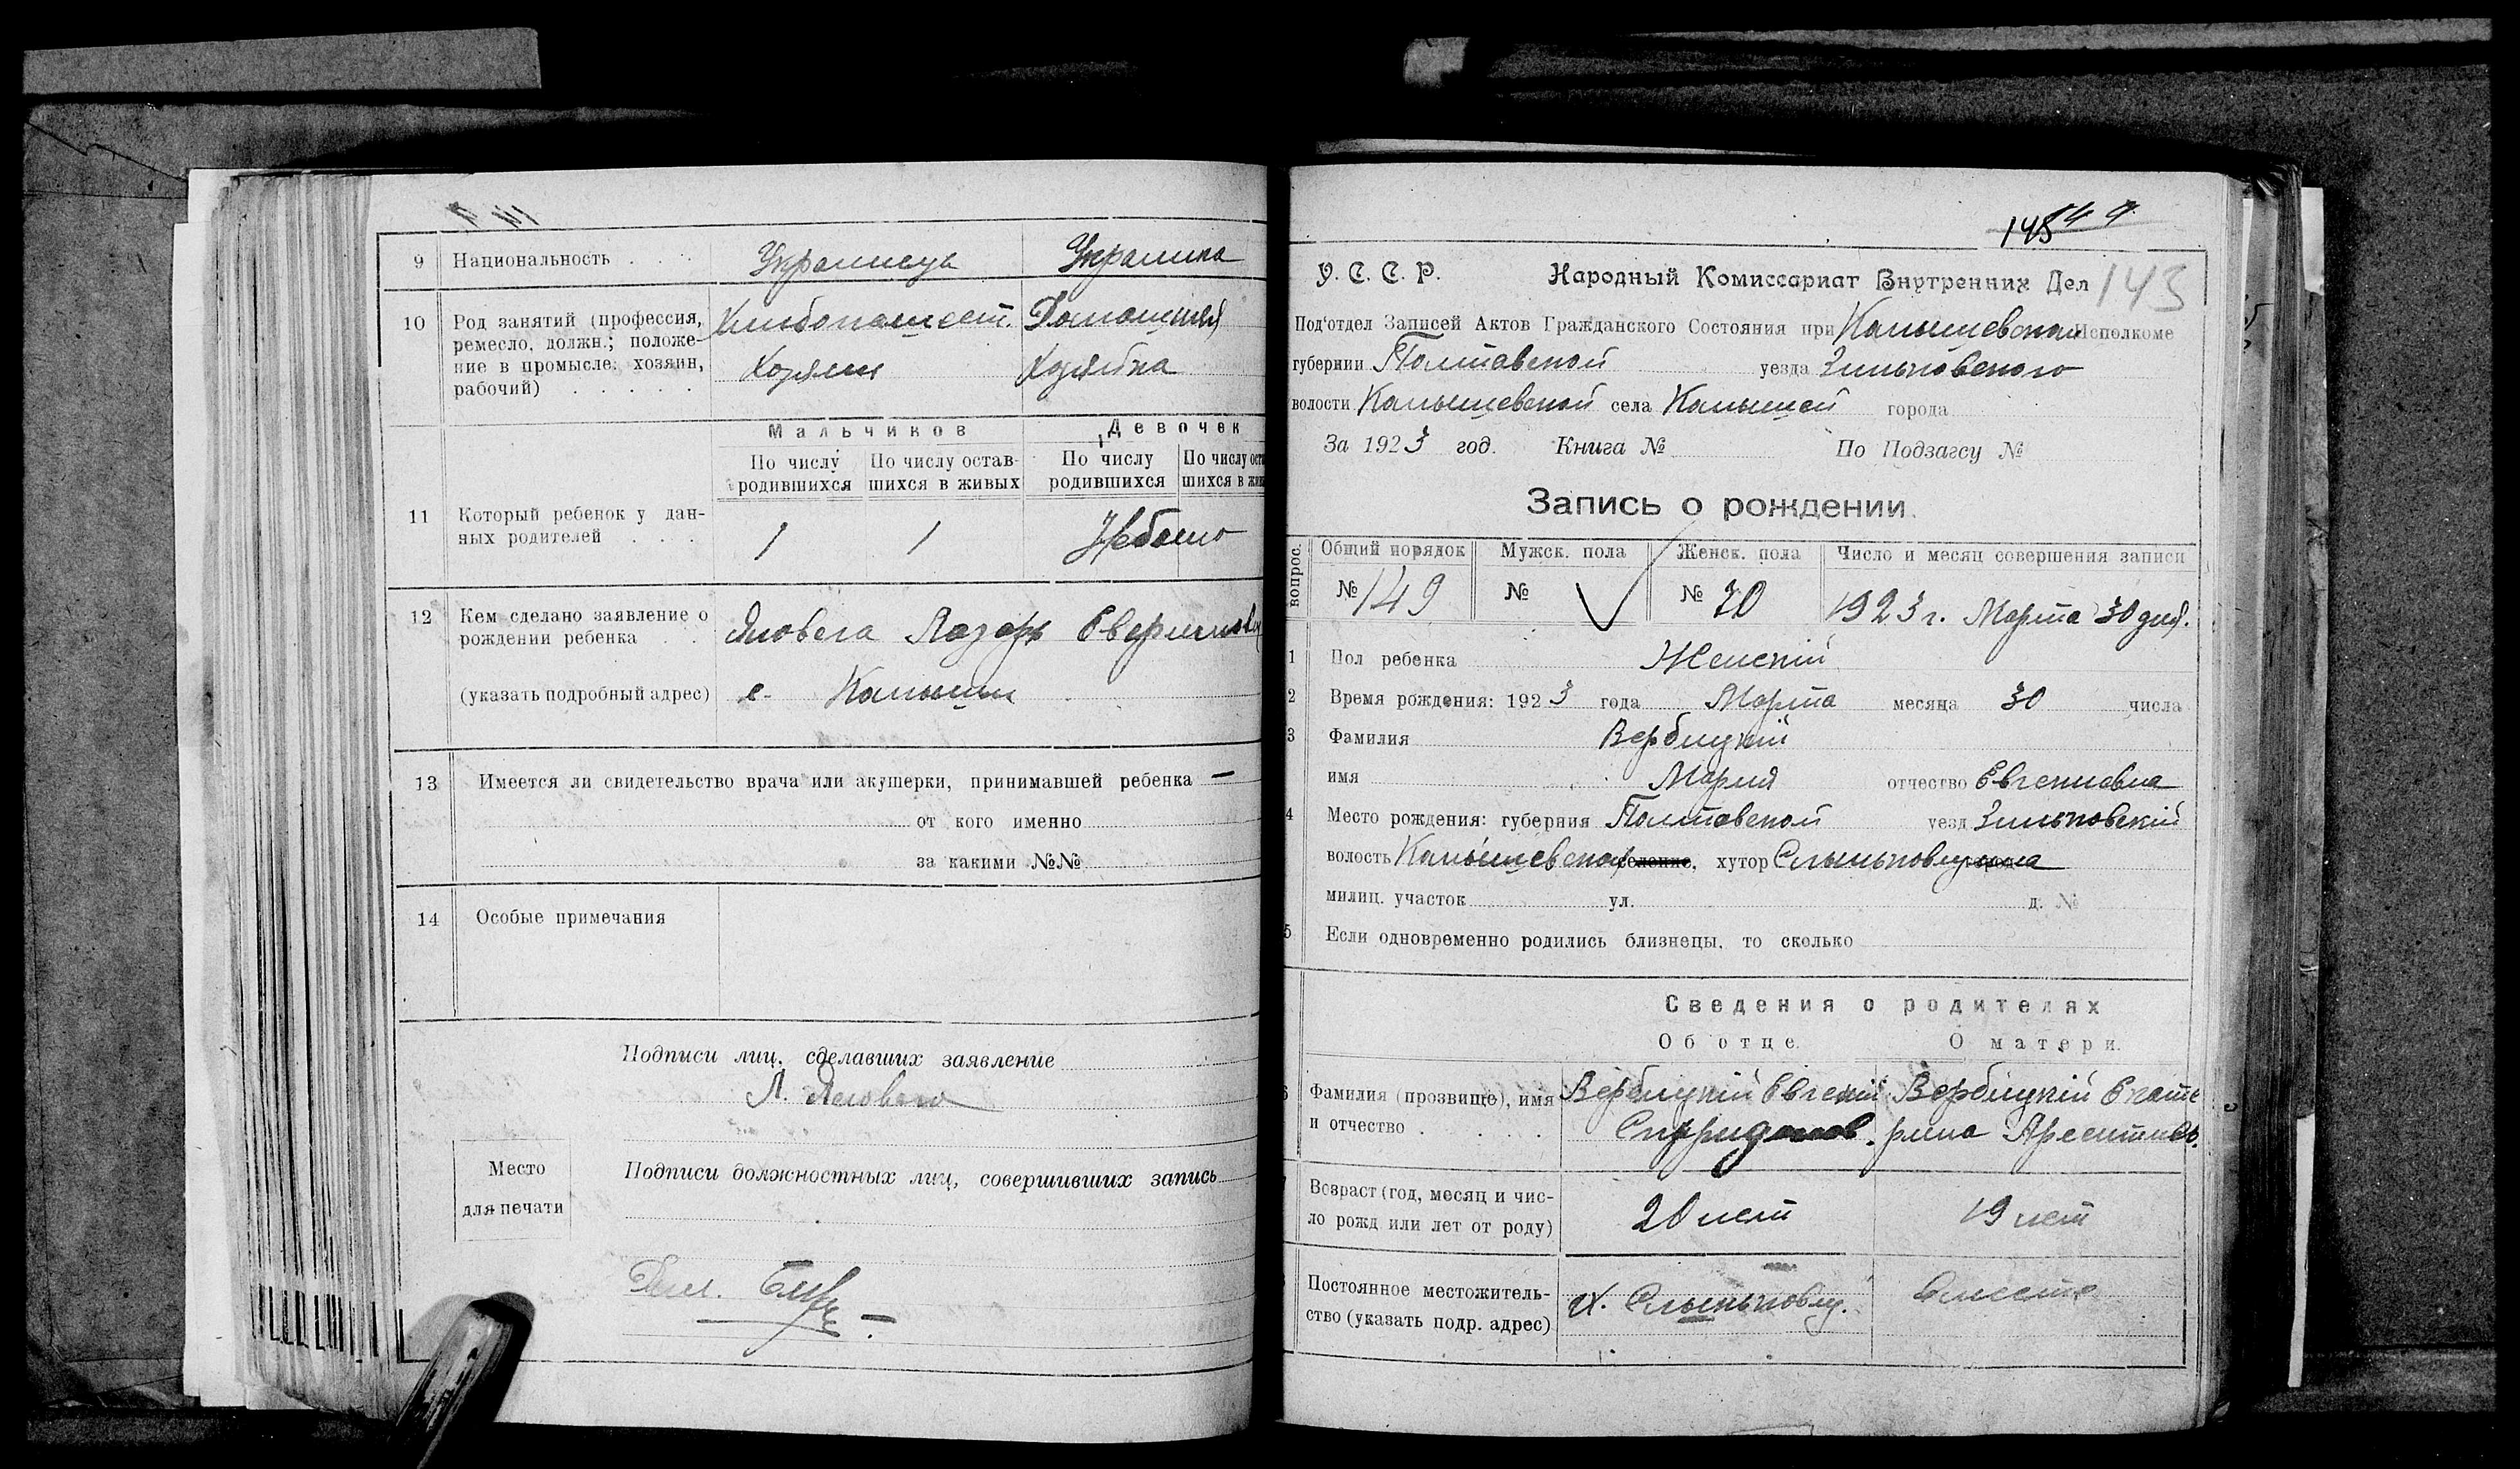 9 Национальность . . . Украинец Украинка
10 Род занятий (профессия, Хлебопашест. Домашняя
ремесло, должн.; положе-
ние в промысле: хозяин, Хозяин Хозяйка
рабочий) . . . . .
Мальчиков Девочек
По числу По числу остав- По числу По числу оста
родившихся шихся в живых родившихся шихся в жив
11 Который ребенок у дан-
ных родителей . . . 1 1 Небыло
12 Кем сделано заявление о
рождении ребенка . . Яловега Лазарь
(указать подробный адрес) с. Камыши
13 Имеется ли свидетельство врача или акушерки, принимавшей ребенка —
от кого именно
за какими №№
14 Особые примечания
Подписи лиц, сделавших заявление
Л. Яловега
Место
для печати
Подписи должностных лиц, совершивших запись
148 149
У. С. С. Р. Народный Комиссариат Внутренних Дел 143
Под'отдел Записей Актов Гражданского Состояния при Камышевском Исполкоме
губернии Полтавской уезда Зиньковского
волости Камышевской села Камышей города
За 1923 год. Книга № По Подзагсу №
Запись о рождении.
вопрос. Общий порядок Мужск. пола Женск. пола Число и месяц совершения записи
№ 149 № № 70 1923 г. Марта 30 дня.
1 Пол ребенка Женскій
2 Время рождения: 1923 года Марта месяца 30 числа
3 Фамилия Вербицкій
имя Мария отчество Евгениевна
4 Место рождения: губерния Полтавской уезд Зиньковскій
волость Камышевская селение, хутор
милиц. участок ул. д. №
5 Если одновременно родились близнецы, то сколько
Сведения о родителях
Об отце. О матери.
6 Фамилия (прозвище), имя Вербицкій Евгений Вербицкій Екате
и отчество . . . . Спиридонов. рина
Возраст (год, месяц и чис-
ло рожд или лет от роду) 20 лет 19 лет
Постоянное местожитель-
ство (указать подр. адрес) х. Вместе